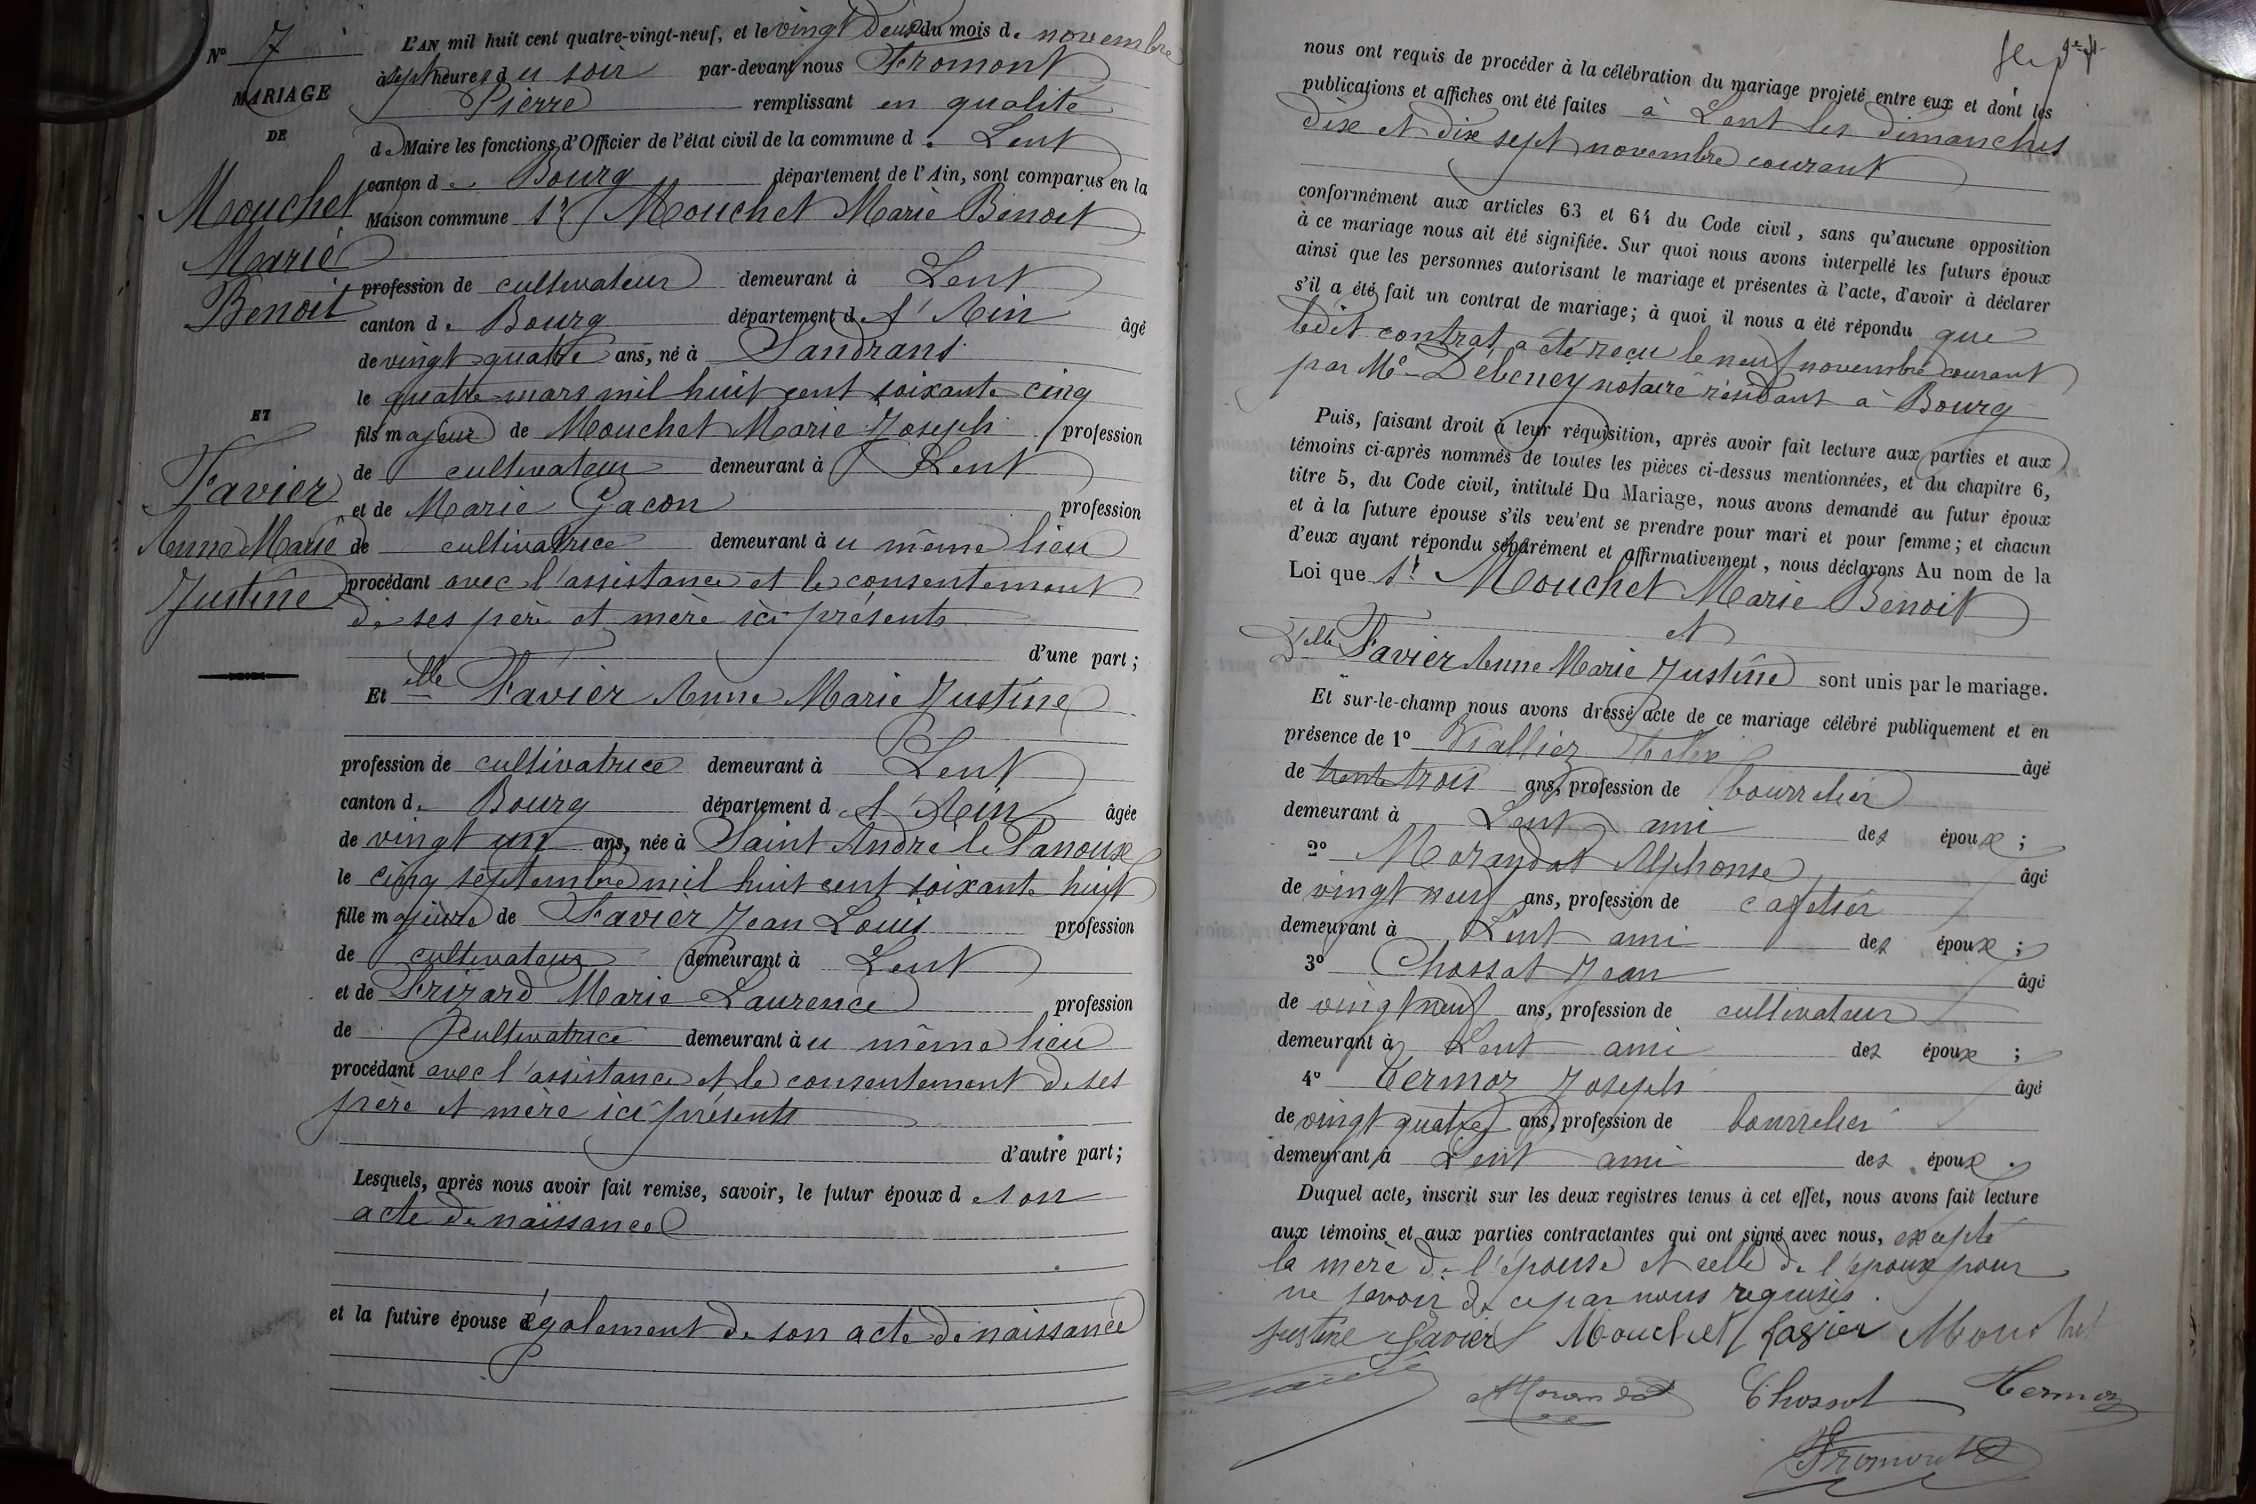 N° 7
MARIAGE
DE
Mouchet
Marie
Benoit
ET
Favier
Anne Marie
Justine
L'AN mil huit cent quatre-vingt-neuf, et le vingt deux du mois de novembre
à sept heures du soir par-devant nous Fromont
Pierre remplissant en qualité
de Maire les fonctions d'Officier de l'état civil de la commune de Lent
canton de Bourg département de l'Ain, sont comparus en la
Maison commune Sr Mouchet Marie Benoit
profession de cultivateur demeurant à Lent
canton de Bourg département d l'Ain âgé
de vingt quatre ans, né à Sandrans
le quatre mars mil huit cent soixante cinq
fils majeur de Mouchet Marie Joseph profession
de cultivateur demeurant à Lent
et de Marie Gacon profession
de cultivatrice demeurant à u même lieu
procédant avec l'assistance et le consentement
de ses père et mère ici présents
d'une part;
Et elle Favier Anne Marie Justine
profession de cultivatrice demeurant à Lent
canton de Bourg département d l'Ain âgée
de vingt un ans, née à Saint André le Panoux
le cinq septembre mil huit cent soixante huit
fille majeure de Favier Jean Louis profession
de cultivateur demeurant à Lent
et de Frizard Marie Laurence profession
de cultivatrice demeurant à u même lieu
procédant avec l'assistance et le consentement de ses
père et mère ici présents
d'autre part;
Lesquels, après nous avoir fait remise, savoir, le futur époux de son
acte de naissance
et la future épouse également de son acte de naissance
nous ont requis de procéder à la célébration du mariage projeté entre eux et dont les
publications et affiches ont été faites à Lent les dimanches
dix et dix sept novembre courant
conformément aux articles 63 et 64 du Code civil, sans qu'aucune opposition
à ce mariage nous ait été signifiée. Sur quoi nous avons interpellé les futurs époux
ainsi que les personnes autorisant le mariage et présentes à l'acte, d'avoir à déclarer
s'il a été fait un contrat de mariage; à quoi il nous a été répondu que
ledit contrat a été reçu le neuf novembre courant
par Me Débeney notaire résidant à Bourg
Puis, faisant droit à leur réquisition, après avoir fait lecture aux parties et aux
témoins ci-après nommés de toutes les pièces ci-dessus mentionnées, et du chapitre 6,
titre 5, du Code civil, intitulé Du Mariage, nous avons demandé au futur époux
et à la future épouse s'ils veu'ent se prendre pour mari et pour femme; et chacun
d'eux ayant répondu séparément et affirmativement, nous déclarons Au nom de la
Loi que Sr Mouchet Marie Benoit
et
Delle Favier Anne Marie Justine sont unis par le mariage.
Et sur-le-champ nous avons dressé acte de ce mariage célébré publiquement et en
présence de 1° Viallier âgé
de trente trois ans, profession de bourrelier
demeurant à Lent ami des époux;
2° Morandat Alphonse âgé
de vingt neuf ans, profession de cafetier
demeurant à Lent ami des époux;
3° Chossat Jean âgé
de vingt neuf ans, profession de cultivateur
demeurant à Lent ami des époux;
4° Termoz Joseph âgé
de vingt quatre ans, profession de bourrelier
demeurant à Lent ami des époux.
Duquel acte, inscrit sur les deux registres tenus à cet effet, nous avons fait lecture
aux témoins et aux parties contractantes qui ont signé avec nous, excepté
la mère de l'épouse et celle de l'époux pour
ne savoir de ce par nous requises.
Justine Favier Mouchet Favier Mouchet
Morandat Chossat Termoz
Fromont